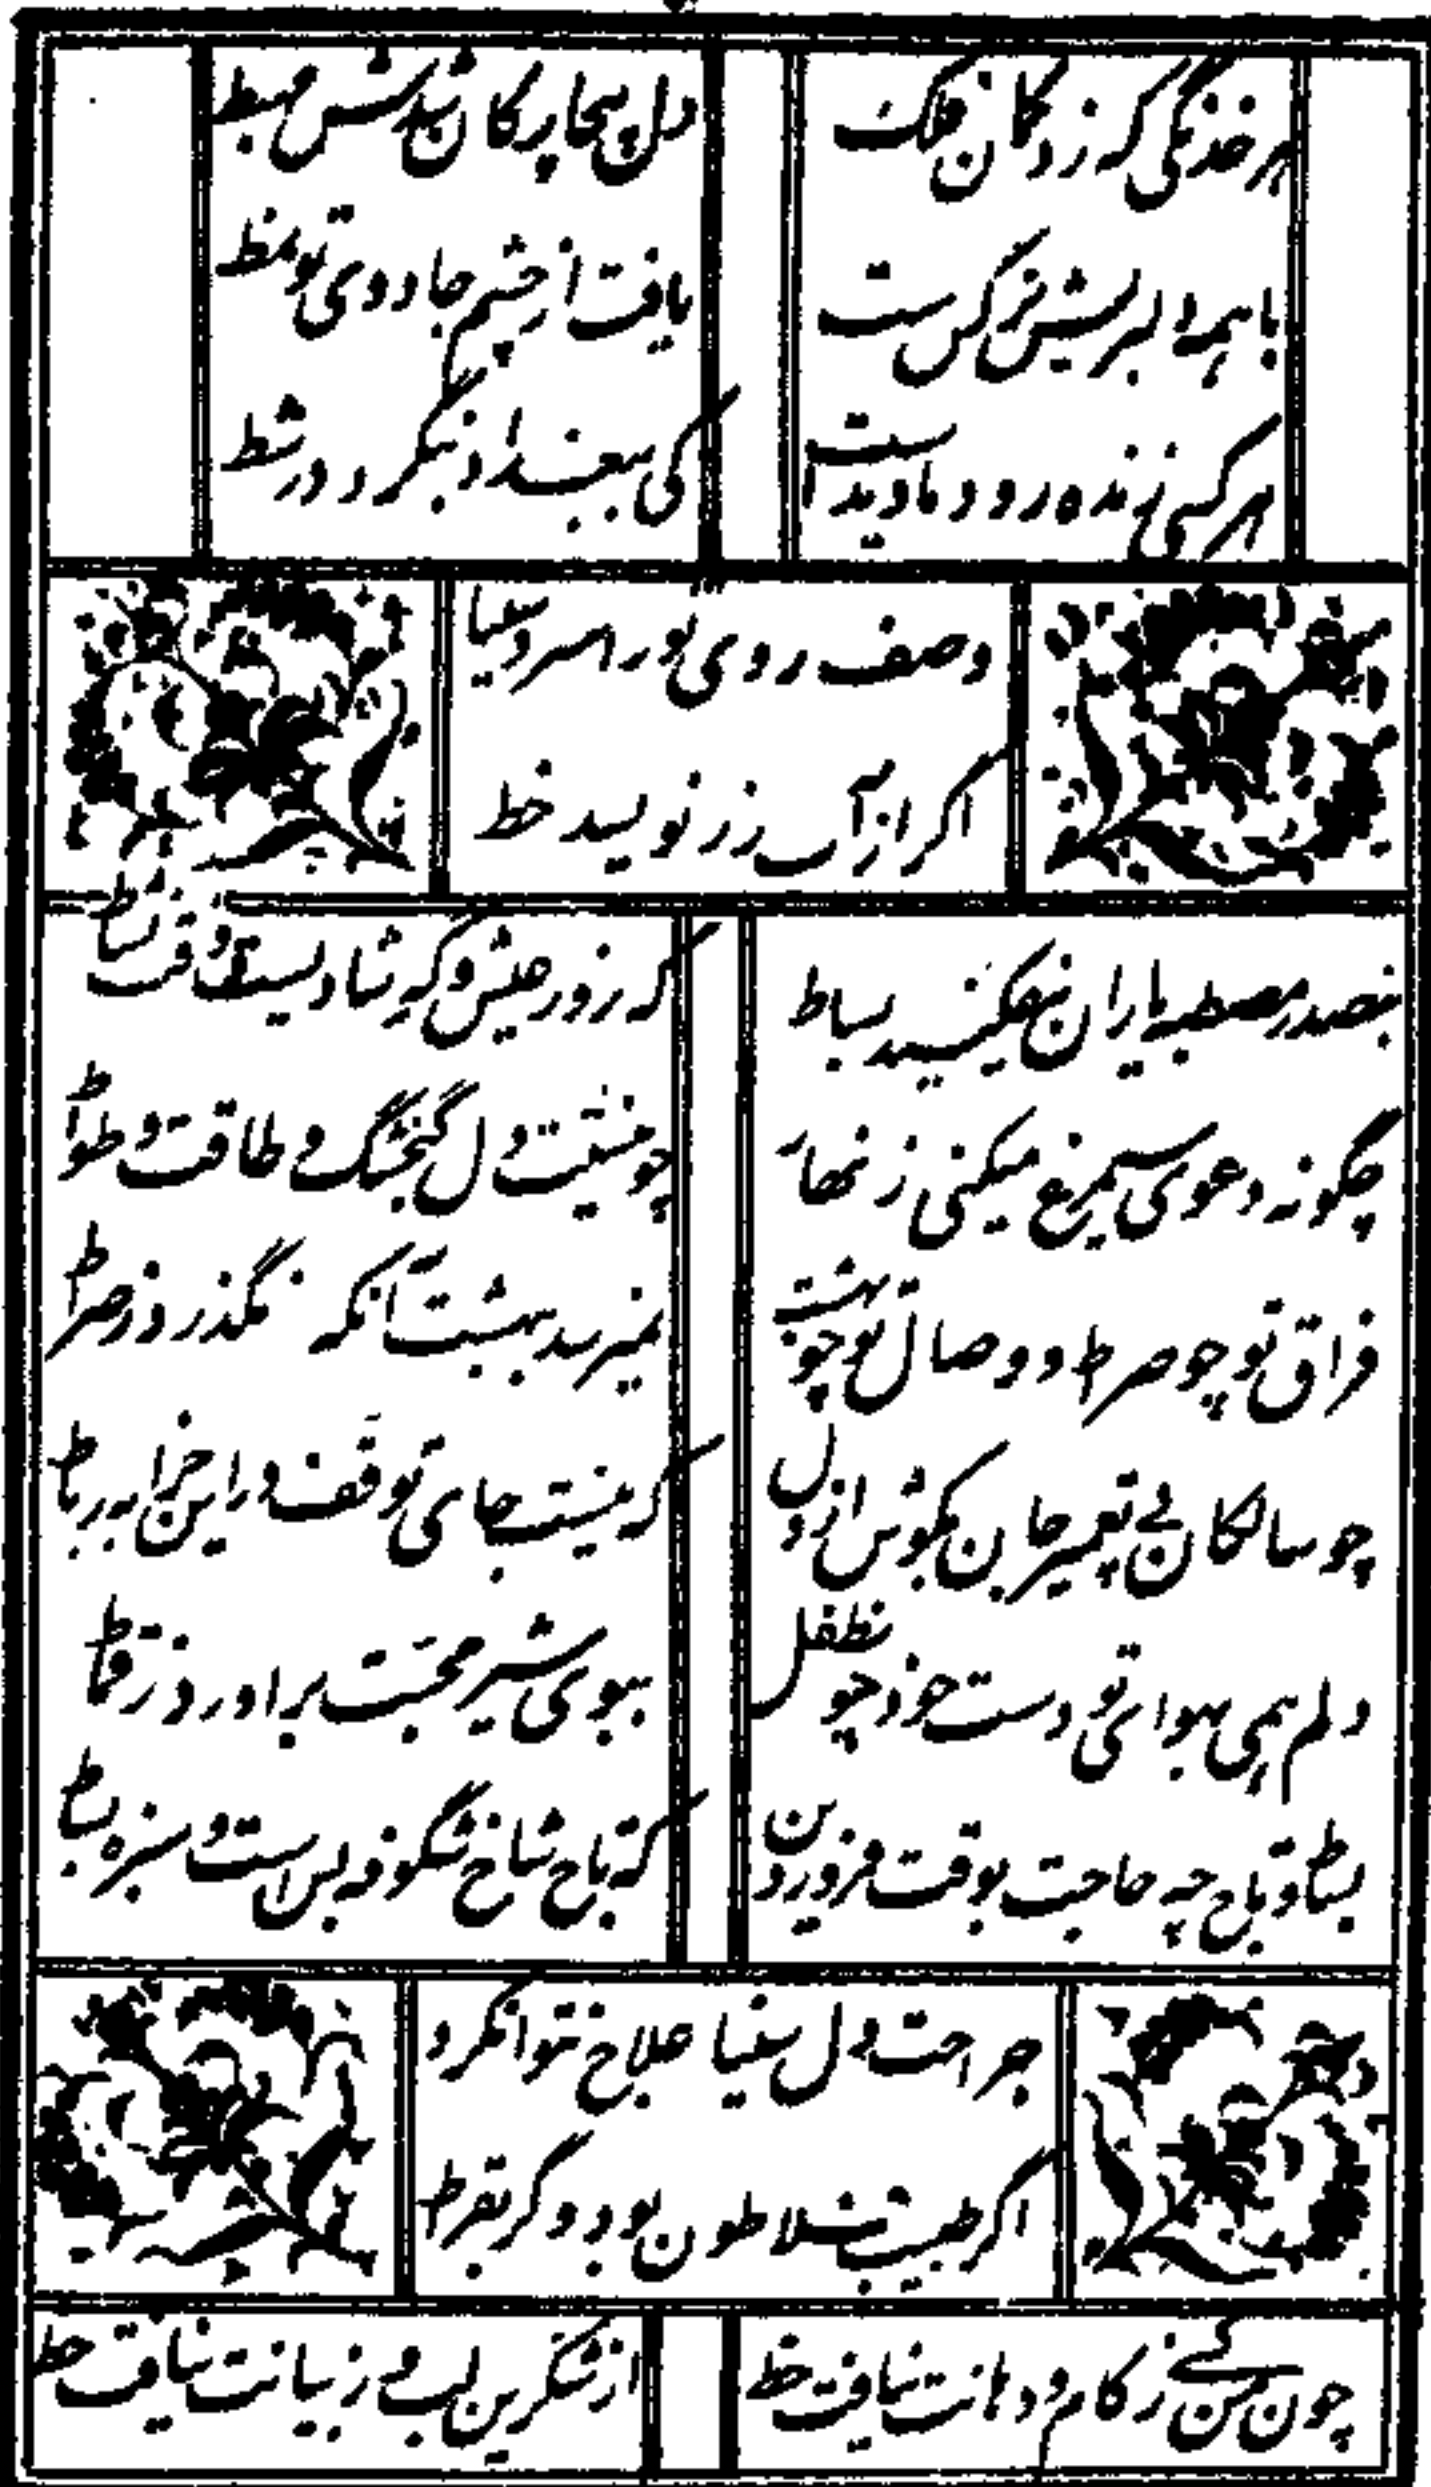 هر خدنگی که زد کمان فلک
دل یغما پر کان شدش مهبط
با همه دلبریش نرگس مست
یافت از چشم جادوی تو نمط
هر کسی زنده رود ما دیدست
کی ببغداد بنگرد در شط
وصف روی تو را سزد یغما
اگر از آب زر نویسد خط
بصدر مصطبه یاران بیفکنید بساط
که روز عیش و گه شادیست و وقت نشاط
چگونه دعوی سیمرغ میکنی زنهار
چو نیستت دل گنجشک و طاقت وطواط
فراق تو چو صراط و وصال تو چو بهشت
نمیرسد ببهشت آنکه نگذرد ز صراط
چو سالکان پی تعمیر جان بکوش از دل
که نیست جای توقف در این خرابه رباط
دلم همی بهوای تو دست خود چو طفل
ببوی شیر محبت برآورد ز قماط
بساط و تاج چه حاجت بوقت فروردین
که تاج شاخ شکوفه بس است و سبزه بساط
جراحت دل یغما علاج نتوانکرد
اگر طبیب فلاطون بود و گر بقراط
چون کسی ز کام و دهانت نیافت حظ
از شکرین لب و ز بیانت نیافت حظ